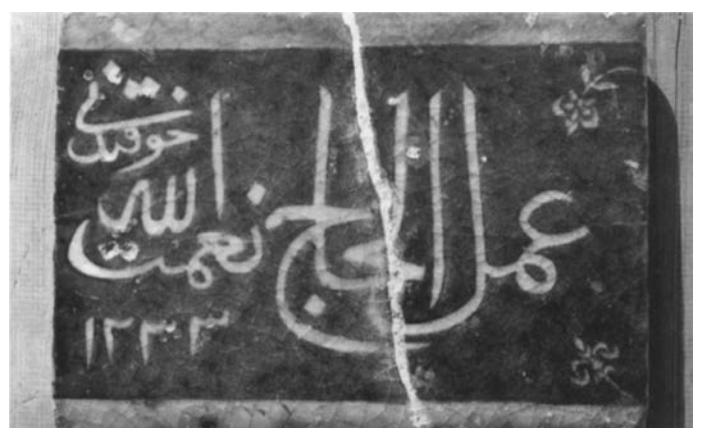 عمل الحاج نعمت الله خوقندی
١٢٣٣